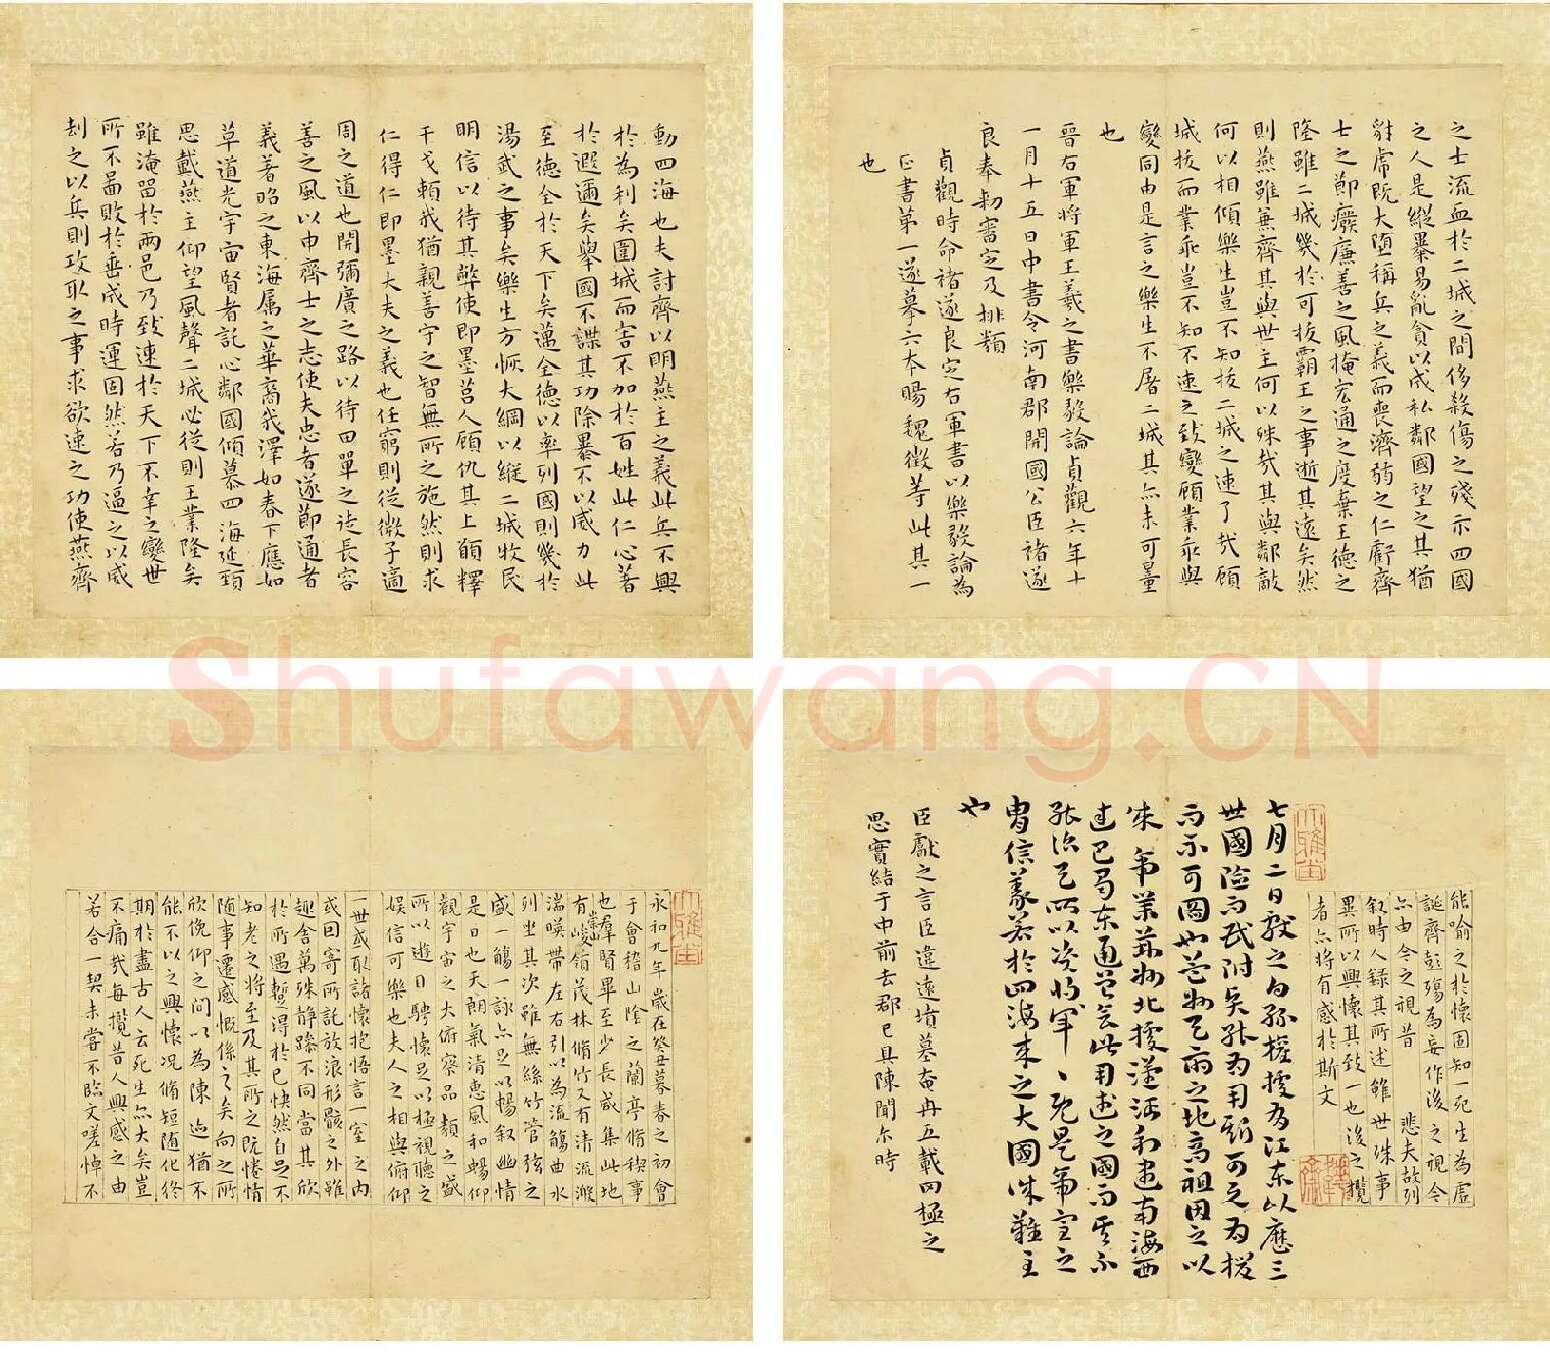 動四海也夫討齊以明燕主之義此兵不興
於為利矣圍城而害不加於百姓此仁心著
於遐邇矣舉國不謀其功除暴不以威力此
至德全於天下矣邁全德以率列國則幾於
湯武之事矣樂生方恢大綱以縱二城牧民
明信以待其弊使即墨莒人顧仇其上願釋
干戈賴我猶親善守之智無所之施然則求
仁得仁即墨大夫之義也任窮則從微子適
周之道也開彌廣之路以待田單之徒長容
善之風以申齊士之志使夫忠者遂節通者
義著昭之東海属之華裔我澤如春下應如
草道光宇宙賢者託心鄰國傾慕四海延頸
思戴燕主仰望風聲二城必從則王業隆矣
雖淹留於兩邑乃致速於天下不幸之變世
所不啚敗於垂成時運固然若乃逼之以威
刦之以兵則攻取之事求欲速之功使燕齊
之士流血於二城之間侈殺傷之殘示四國
之人是縱暴易亂貪以成私鄰國望之其猶
豺虎既大墮稱兵之義而喪濟弱之仁虧齊
士之節廢廉善之風掩宏通之度棄王德之
隆雖二城幾於可拔霸王之事逝其遠矣然
則燕雖兼齊其與世主何以殊哉其與鄰敵
何以相傾樂生豈不知拔二城之速了哉顧
城拔而業乖豈不知不速之致變顧業乖與
變同由是言之樂生不屠二城其亦未可量
也
晉右軍將軍王羲之書樂毅論貞觀六年十
一月十五日中書令河南郡開國公臣褚遂
良奉勑審定及排類
貞觀時命褚遂良定右軍書以樂毅論為
正書第一遂摹六本賜魏徵等此其一
也
永和九年歲在癸丑暮春之初會
于會稽山陰之蘭亭脩稧事
也羣賢畢至少長咸集此地
有崇山峻領茂林脩竹又有清流激
湍暎帶左右引以為流觴曲水
列坐其次雖無絲竹管弦之
盛一觴一詠亦足以暢叙幽情
是日也天朗氣清惠風和暢仰
觀宇宙之大俯察品類之盛
所以遊目騁懷足以極視聽之
娛信可樂也夫人之相與俯仰
一世或取諸懷抱悟言一室之內
或因寄所託放浪形骸之外雖
趣舍萬殊靜躁不同當其欣
於所遇蹔得於己快然自足不
知老之將至及其所之既惓情
随事遷感慨係之矣向之所
欣俛仰之間以為陳迹猶不
能不以之興懷况脩短随化終
期於盡古人云死生亦大矣豈
不痛哉每攬昔人興感之由
若合一契未嘗不臨文嗟悼不
能喻之於懷固知一死生為虛
誕齊彭殤為妄作後之視今
亦由今之視昔 悲夫故列
叙時人錄其所述雖世殊事
異所以興懷其致一也後之攬
者亦將有感於斯文
七月二日獻之白孫權據有江東以歷三
世國險而民附
而不可圖也
地高祖因之以
北據漢沔利盡南海西
連巴蜀東通吳會此用武之國而其不
將軍
胄信義著於四海
也
臣獻之言臣違遠墳墓奄冉五載罔極之
思實結于中前去郡已具陳聞尔時
Shufawang.CN